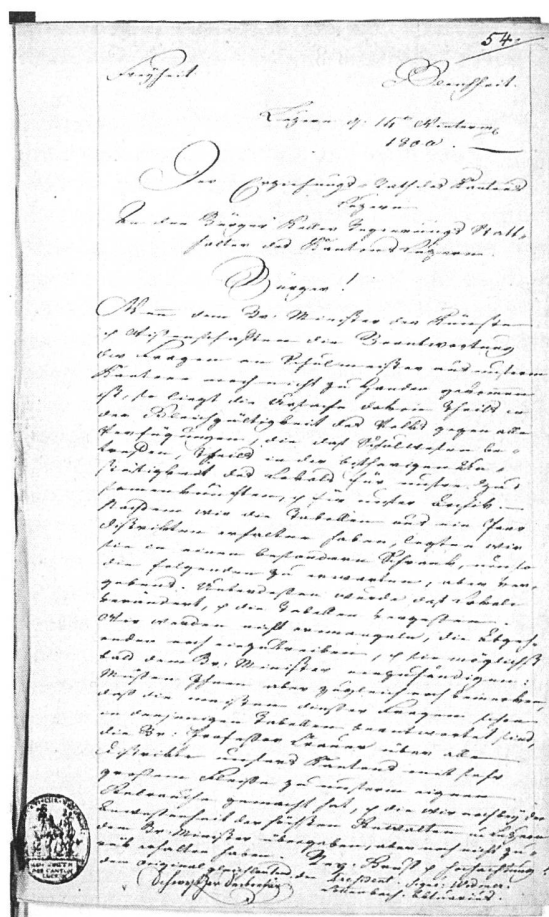 54.
Freyheit. Gleichheit.
Luzern d. 14n Winterm.
1800.
Der Erziehungs-Rath des Kantons
Luzern.
An den Bürger Keller Regierungs Statt-
halter des Kantons Luzern.
Bürger!
Wenn dem Br. Minister der Künsten
& Wissenschaften die Beantwortung
der Fragen an Schulmeister aus unserm
Kanton noch nicht zu Handen gekommen
ist, so liegt die Ursache davon Theils in
der Gleichgültigkeit des Volks gegen alle
Verfügungen, die das Schulwesen be-
treffen, Theils in der bisherigen
des Lokals für unsere Zu-
sammenkünften, & für unser Archiv.
Nachdem wir die Tabellen aus ein Paar
Distrikten erhalten haben, legten wir
sie in einen besondern Schrank, um
die folgenden zu erwarten, aber ver-
gebens. Unterdessen wurde das Lokal
verändert, & die Tabellen vergessen.
Wir werden nicht ermangeln, die
noch einzutreiben, & sie möglichst
bald dem Br. Minister einzuhändigen.
Müssen Ihnen aber zugleich
daß die meisten dieser Fragen schon
in denjenigen Tabellen beantwortet sind,
die Br. Professor Krauer über alle
Distrikte unsers Kantons mit sehr
großem Fleiße zu unserm eigenen
Gebrauche gemacht hat, & die wir noch bey der
Anwesenheit der Regierung in Luzern
dem Br. Minister übergeben, aber noch nicht zu-
rück erhalten haben. Gruß & Hochachtung!
dem Original Der President
Sekretär